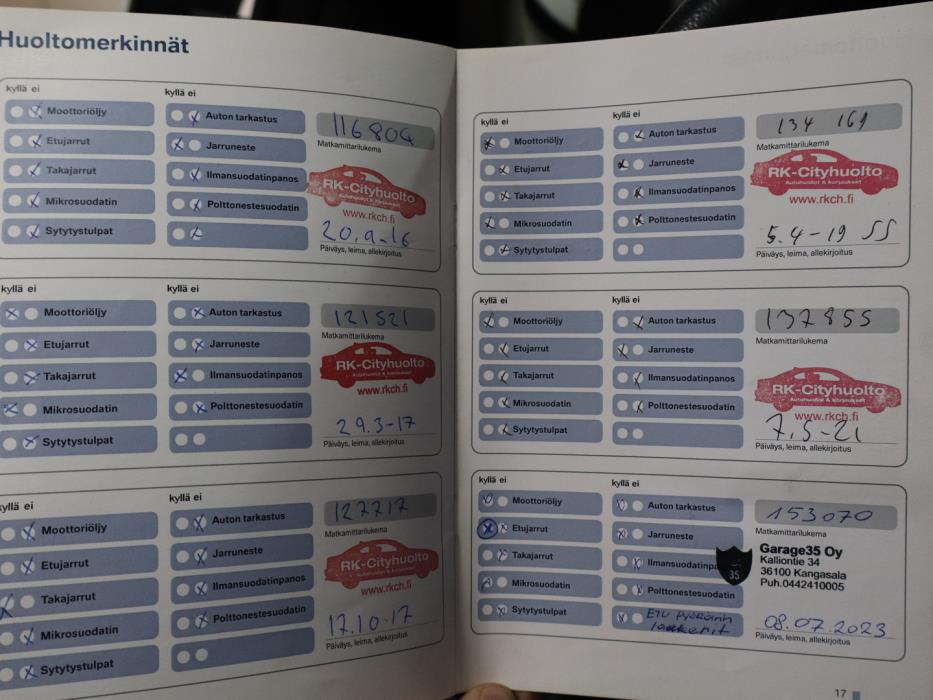 Huoltomerkinnät
kyllä ei
kyllä ei
Moottoriöljy
Auton tarkastus
116804
Matkamittarilukema
Etujarrut
Jarruneste
Takajarrut
Ilmansuodatinpanos
RK-Cityhuolto
Autohuollot & korjaukset
www.rkch.fi
Mikrosuodatin
Polttonestesuodatin
Sytytystulpat
20.9-16
Päiväys, leima, allekirjoitus
kyllä ei
kyllä ei
Moottoriöljy
Auton tarkastus
121521
Matkamittarilukema
Etujarrut
Jarruneste
Takajarrut
Ilmansuodatinpanos
RK-Cityhuolto
Autohuollot & korjaukset
www.rkch.fi
Mikrosuodatin
Polttonestesuodatin
Sytytystulpat
29.3-17
Päiväys, leima, allekirjoitus
kyllä ei
kyllä ei
Moottoriöljy
Auton tarkastus
127717
Matkamittarilukema
Etujarrut
Jarruneste
Takajarrut
Ilmansuodatinpanos
RK-Cityhuolto
Autohuollot & korjaukset
www.rkch.fi
Mikrosuodatin
Polttonestesuodatin
Sytytystulpat
17.10-17
Päiväys, leima, allekirjoitus
kyllä ei
kyllä ei
Moottoriöljy
Auton tarkastus
134 169
Matkamittarilukema
Etujarrut
Jarruneste
Takajarrut
Ilmansuodatinpanos
RK-Cityhuolto
Autohuollot & korjaukset
www.rkch.fi
Mikrosuodatin
Polttonestesuodatin
Sytytystulpat
5.4-19 SS
Päiväys, leima, allekirjoitus
kyllä ei
kyllä ei
Moottoriöljy
Auton tarkastus
137855
Matkamittarilukema
Etujarrut
Jarruneste
Takajarrut
Ilmansuodatinpanos
RK-Cityhuolto
Autohuollot & korjaukset
www.rkch.fi
Mikrosuodatin
Polttonestesuodatin
Sytytystulpat
7.5-21
Päiväys, leima, allekirjoitus
kyllä ei
kyllä ei
Moottoriöljy
Auton tarkastus
153070
Matkamittarilukema
Etujarrut
Jarruneste
Takajarrut
Ilmansuodatinpa
35
Garage35 Oy
Kalliontie 34
36100 Kangasala
Puh.0442410005
Mikrosuodatin
Polttonestesuodatin
Sytytystulpat
Etu pyöränn
laakerit
08.07.2023
Päiväys, leima, allekirjoitus
17